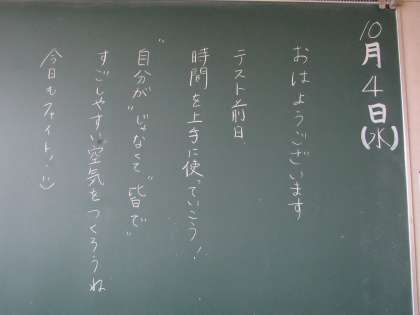 10月4日(水)
おはようございます
テスト前日
時間を上手に使っていこう!
"自分が"じゃなくて"皆で"
すごしやすい空気をつくろうね
今日もファイト!:)